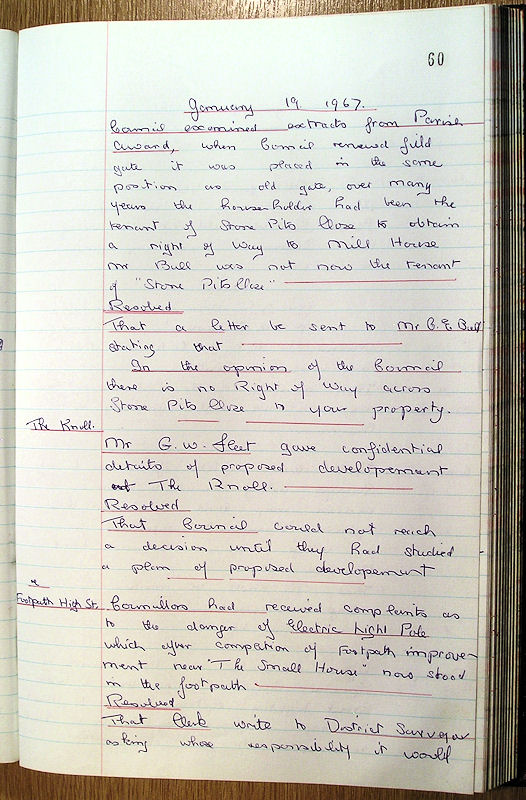 60
January 19 1967.
Council examined extracts from Parish
Award, when Council renewed field
gate it was placed in the same
position as old gate, over many
years the householder had been the
tenant of Stone Pits Close to obtain
a right of way to Mill House
Mr Bull was not now the tenant
of "Stone Pits Close"
Resolved
That a letter be sent to Mr B. E Bull
stating that
In the opinion of the Council
there is no Right of Way across
Stone Pits Close to your property.
The Knoll.
Mr G. W. Fleet gave confidential
details of proposed developement
The Knoll.
Resolved
That Council could not reach
a decision until they had studied
a plan of proposed developement
Footpath High St.
Councillors had received complaints as
to the danger of Electric Light Pole
which after completion of Footpath improve-
ment near "The Small House" now stood
in the footpath
Resolved
That Clerk write to District Surveyor
asking whose responsibility it would